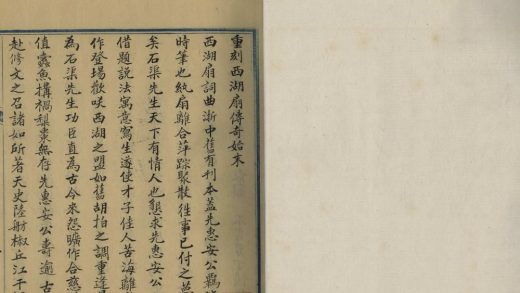 重刻西湖扇傳奇始末
西湖扇詞曲浙中舊有刊本蓋先惠安公羈
時筆也紈扇離合萍踪聚散往事已付之
矣石渠先生天下有情人也懇求先惠安公
借題說法寓意寫生遂使才子佳人苦海離
作登場歡咲西湖之盟如舊胡拍之調重逢
為石渠先生功臣直為古今來怨曠作合慈
值蠹魚搆禍梨棗無存先惠安公壽逾古
赴修文之召諸如所著天史陸舫椒丘江干